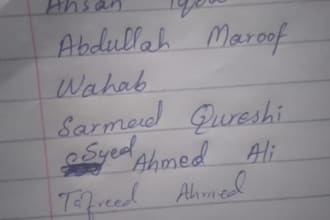 Ahsan Iqbal
Abdullah Maroof
Wahab
Sarmad Qureshi
Syed Ahmed Ali
Tafreed Ahmed